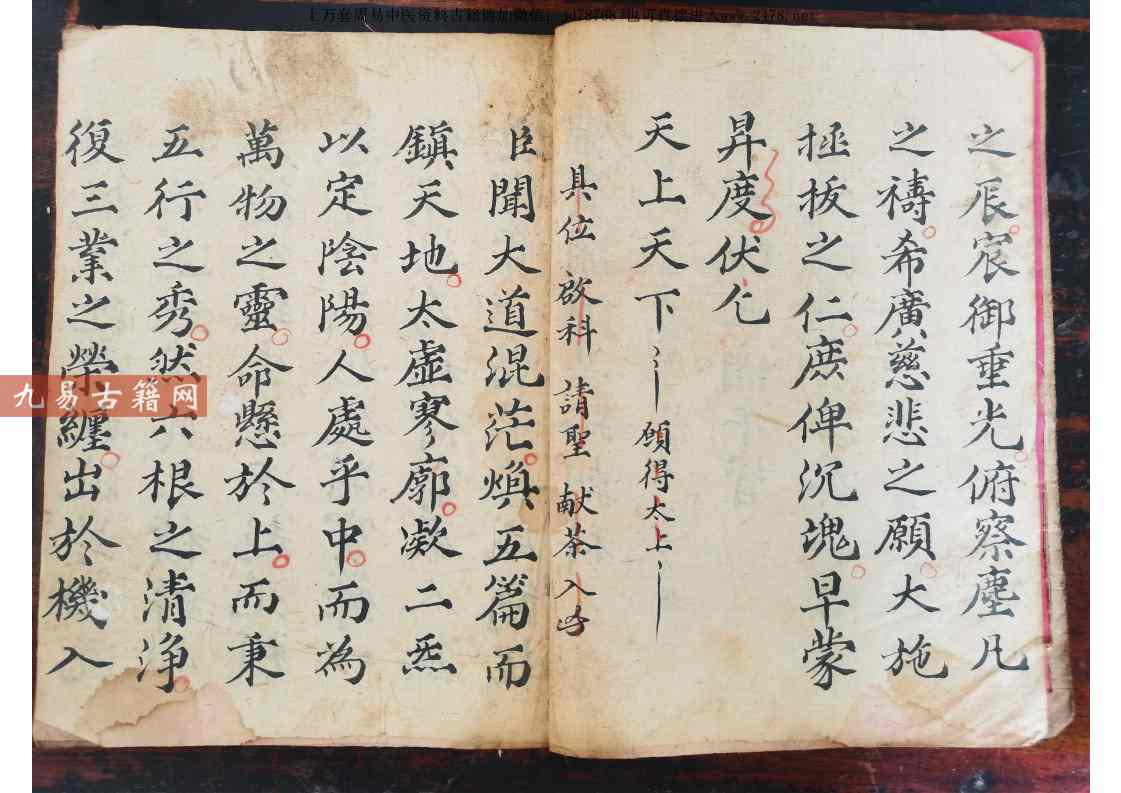 上万套周易中医资料古籍请加微信:
之辰宸御垂光俯察塵凡
之禱希廣慈悲之願大施
拯拔之仁庶俾沉塊早蒙
昇度伏乞
天上天下 願得太上
具位 啟科 請聖 献茶 入
臣聞大道混茫煥五篇而
鎮天地太虛寥廓凝二炁
以定陰陽人處乎中而為
萬物之靈命懸於上而秉
五行之秀然六根之清淨
復三業之榮纏出於機入
九易古籍网